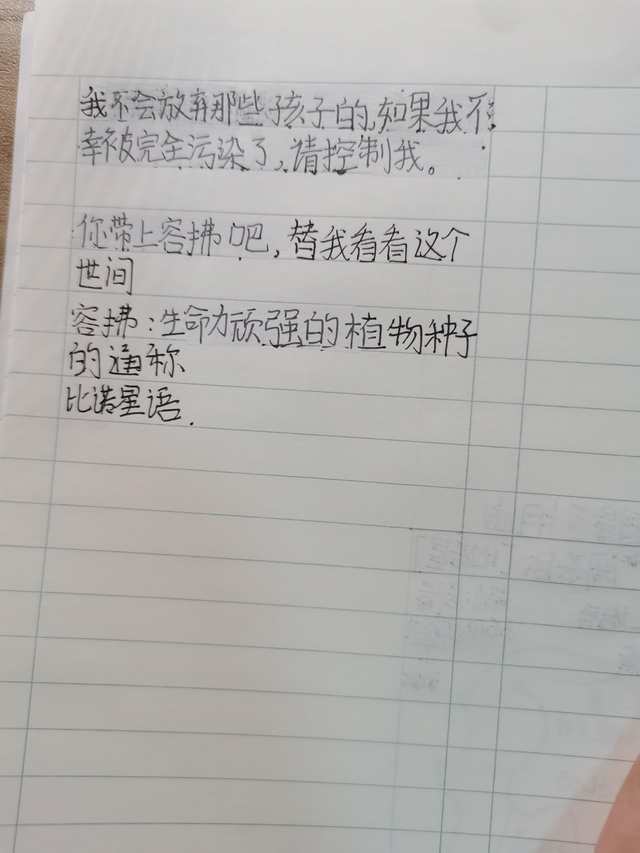 我不会放弃那些孩子的,如果我不
幸被完全污染了,请控制我。
你带上容拂吧,替我看看这个
世间
容拂:生命力顽强的植物种子
的通称
比诺星语.